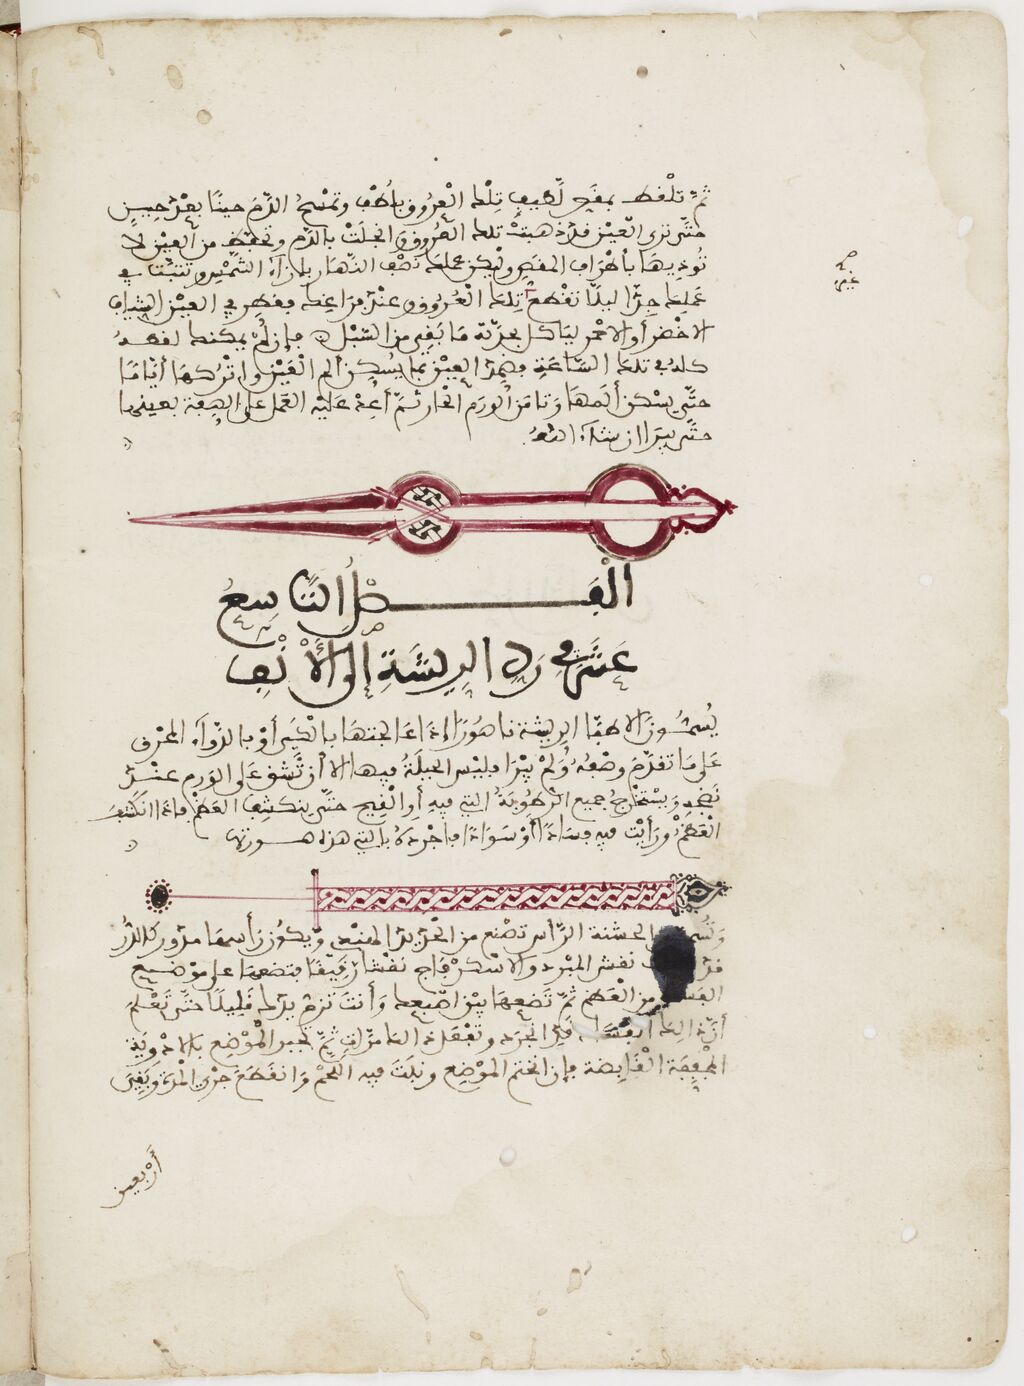 ثمّ تلفط بمقص لطيف تلك العروق بلطف وتمسح الدّم حينًا بعد حين
حتّى ترى العين قد ذهبت تلك العروق وانجلت بالدّم وتحفظ من العين لا
تُوذيها بأطراف المقص وليكن عملك نصف النّهار بازاء الشّمس وتتثبّت في
عملك جدًّا ليلّا تقطع تلك العروق عند فراغك فقطر في العين الشياف
الاخضر أو الاحمر ليأكل بحدّته ما بقي من السّبل فإن لم يمكنك لقطهُ
كله في تلك السّاعة فضمد العين بما يسكن ألم العين واتركها أيّامًا
حتّى يسكن ألمها وتامن الورم الحار ثمّ أعد عليه العمل على الصفة بعينها
حتّى يبرا ان شاء الله
عين
الفصل التاسع
عشر في ردّ الريشة إلى الأنف
يُسمّون الاطبّا الريشة ناصُورًا إذا عالجتها بالكي أو بالدّواء المحرق
على ما تقدّم وصفهُ ولم يبرا فليس الحيلة فيها الا أن تشق على الورم عند
نضجه ويستخرج جميع الرّطوبة التي فيه أو القيح حتّى ينكشف العظم فاذا انكشف
العظم ورأيت فيه فسادًا أو سوادًا فاجردهُ بالة هذه صورتها
وتُسمّى الخشنة الرّاس تصنع من الحديد الهند ويكون رأسها مدوّر كالزّر
قد نقش نقش المبرد والاسكرفاج نقشا رقيقًا فتضعها على موضع
الفساد من العظم ثمّ تضعها بين اصبعك وأنت تزم يدك قليلًا حتّى تعلم
أنّ ذلك الفساد قد انجرد وتفعل ذلك مرّات ثمّ تجبر الموضع بالادوية
المجففة القابضة فإن انختم الموضع ونبت فيه اللحم وانقطع جري المدة وبقي
أربعين